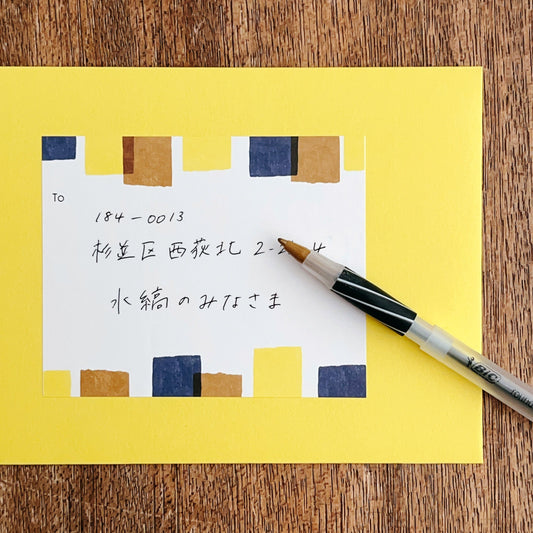 To
184-0013
杉並区西荻北 2-2 4
水縞のみなさま
BIC